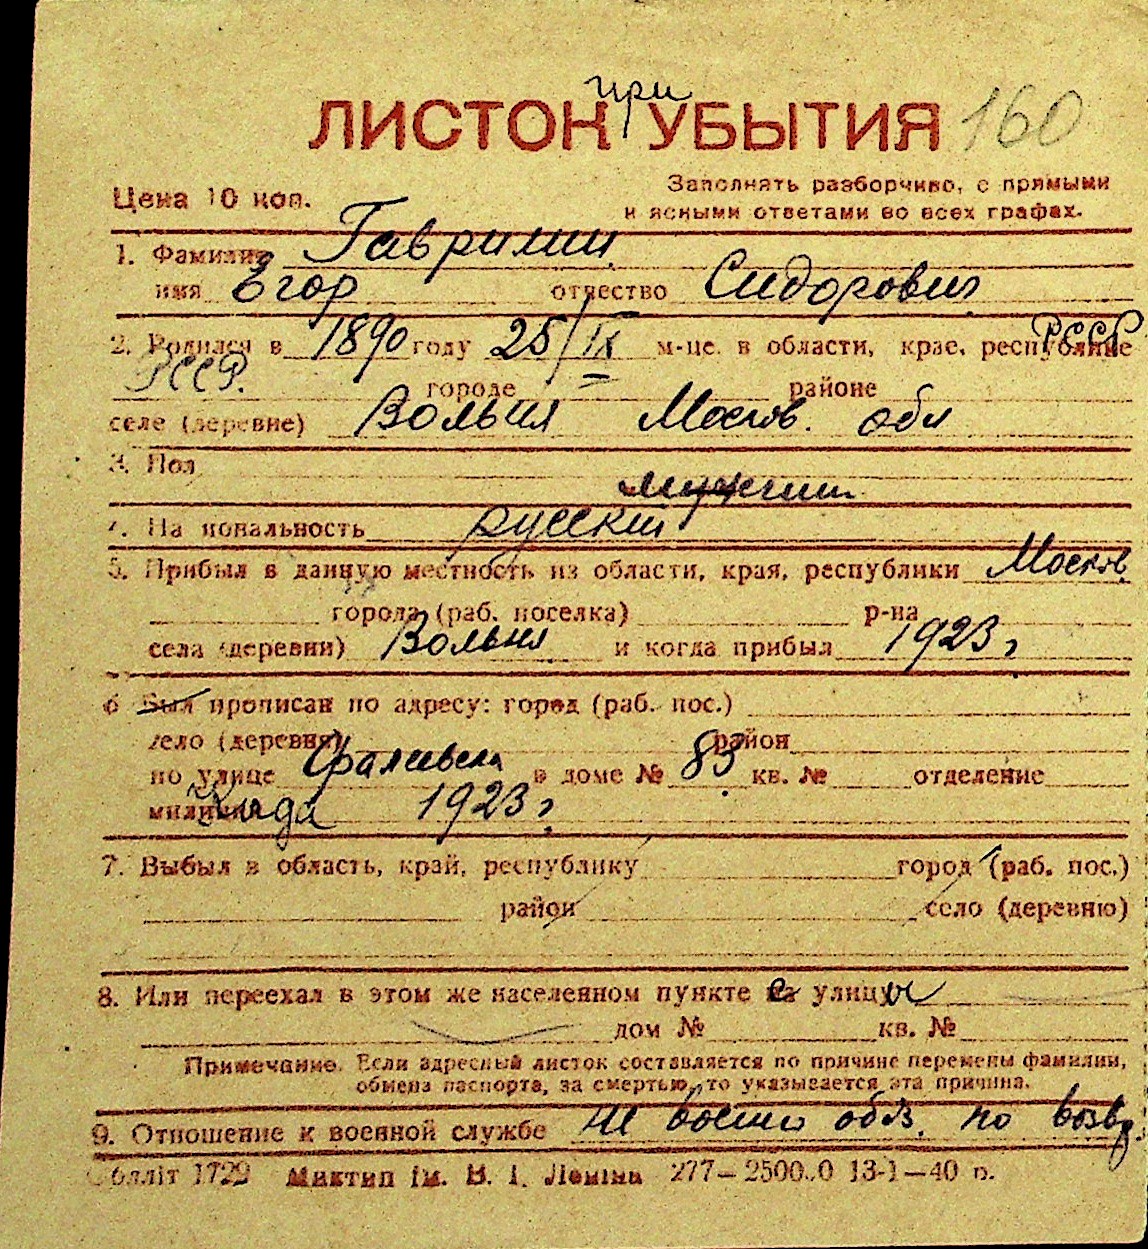 ЛИСТОК при УБЫТИЯ 160
Цена 10 коп. Заполнять разборчиво, с прямыми
и ясными ответами во всех графах.
1. Фамилия Гаврилин
имя Егор отчество Сидорович
2. Родился в 1890 году 25/IX м-це. в области, крае, республике РССР
РССР. городе районе
селе (деревне) Вольня Москов. обл
3. Пол мужчин
4. Национальность русский
5. Прибыл в данную местность из области, края, республики Москов.
города (раб. поселка) р-на
села (деревни) Вольня и когда прибыл 1923 г
6 Был прописан по адресу: город (раб. пос.)
село (деревня) район
по улице в доме № 83 кв. № отделение
милиции 1923 г
7. Выбыл в область, край, республику город (раб. пос.)
район село (деревню)
8. Или переехал в этом же населенном пункте с улицы
дом № кв. №
Примечание. Если адресный листок составляется по причине перемены фамилии,
обмена паспорта, за смертью, то указывается эта причина.
9. Отношение к военной службе не военно обяз. по возр.
Облліт 1729 Миктип ім. В. І. Леніна 277—2500.0 13-1—40 р.